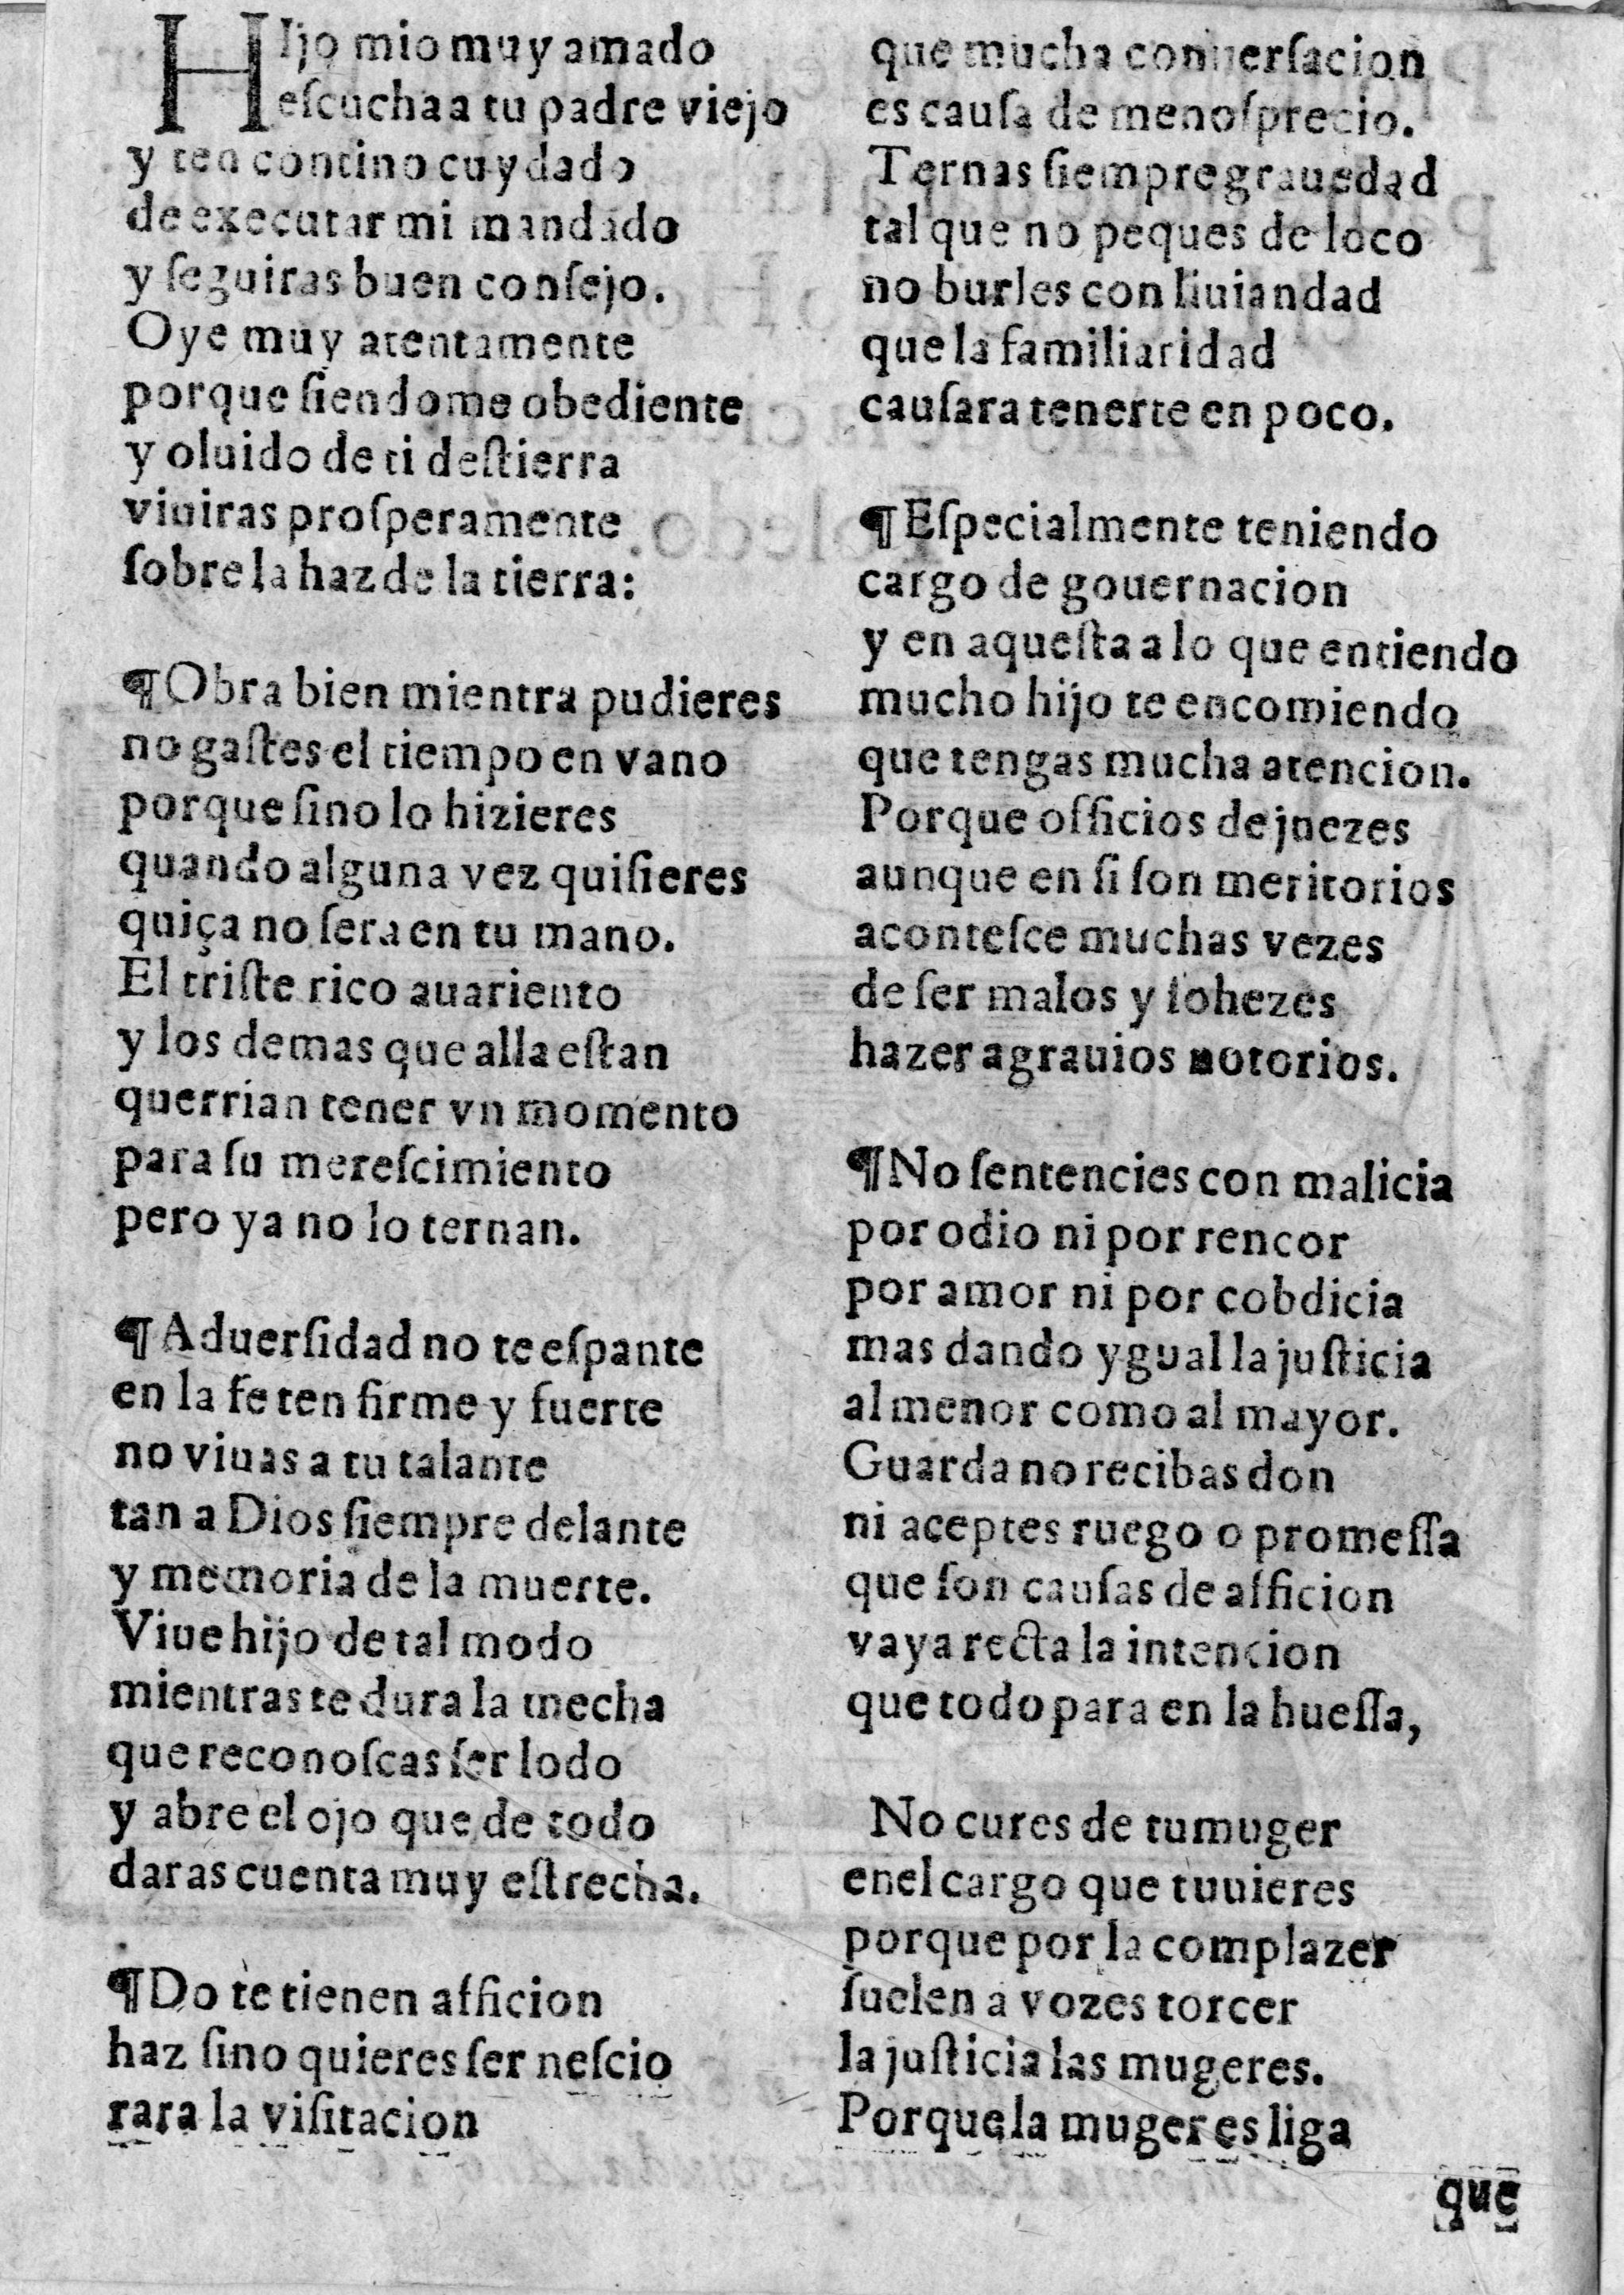 HIjo mio muy amado
eſcucha a tu padre viejo
y ten contino cuydado
de executar mi mandado
y ſeguiras buen conſejo.
Oye muy atentamente
porque ſiendome obediente
y oluido de ti deſtierra
viuiras proſperamente
ſobre la haz de la tierra:
¶Obra bien mientra pudieres
no gaſtes el tiempo en vano
porque ſino lo hizieres
quando alguna vez quiſieres
quiça no ſera en tu mano.
El triſte rico auariento
y los demas que alla eſtan
querrian tener vn momento
para ſu mereſcimiento
pero ya no lo ternan.
¶Aduerſidad no te eſpante
en la fe ten firme y fuerte
no viuas a tu talante
tan a Dios ſiempre delante
y memoria de la muerte.
Viue hijo de tal modo
mientras te dura la mecha
que reconoſcas ſer lodo
y abre el ojo que de todo
daras cuenta muy eſtrecha.
¶Do te tienen afficion
haz ſino quieres ſer neſcio
rara la viſitacion
que mucha conuerſacion
es cauſa de menoſprecio.
Ternas ſiempre grauedad
tal que no peques de loco
no burles con liuiandad
que la familiaridad
cauſara tenerte en poco.
¶Eſpecialmente teniendo
cargo de gouernacion
y en aqueſta a lo que entiendo
mucho hijo te encomiendo
que tengas mucha atencion.
Porque officios de juezes
aunque en ſi ſon meritorios
aconteſce muchas vezes
de ſer malos y ſohezes
hazer agrauios notorios.
¶No ſentencies con malicia
por odio ni por rencor
por amor ni por cobdicia
mas dando ygual la juſticia
al menor como al mayor.
Guarda no recibas don
ni aceptes ruego o promeſſa
que ſon cauſas de afficion
vaya recta la intencion
que todo para en la hueſſa,
No cures de tu muger
enel cargo que tuuieres
porque por la complazer
ſuelen a vozes torcer
la juſticia las mugeres.
Porque la muger es liga
que